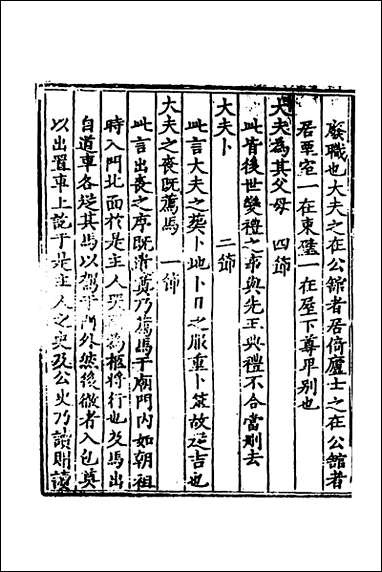 廢職也大夫之在公館者居倚廬士之在公館者
居堊室一在東壁一在屋下尊卑别也
大夫為其父母　四節
此皆後世變禮之事與先王典禮不合當刪去
大夫卜　二節
此言大夫之葬卜地卜日之服重卜筮故從吉也
大夫之喪既薦馬　一節
此言出喪之序既濟奠乃薦馬于廟門内如朝祖
時入門北面於是主人哭為柩將行也及馬出
自道車各從其馬以駕于門外然後徹者入包奠
以出置車上說于是主人之史及公史乃讀賵讀